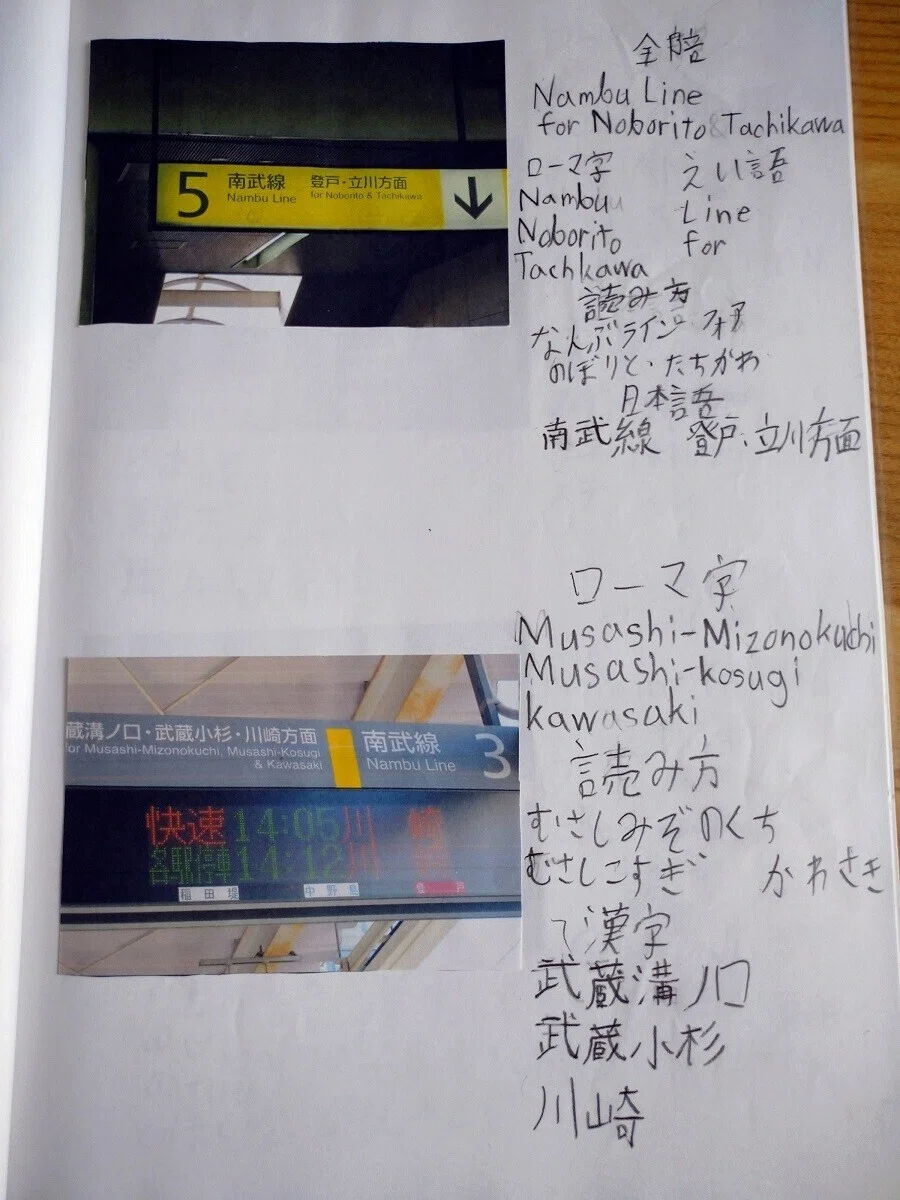 全賠
Nambu Line
for Noborito & Tachikawa
ローマ字 えい語
Nambu Line
Noborito for
Tachkawa
読み方
なんぶライン フォア
のぼりと・たちかわ
日本語
南武線 登戸、立川方面
5 南武線 登戸・立川方面
Nambu Line for Noborito & Tachikawa
ローマ字
Musashi-Mizonokuchi
Musashi-kosugi
kawasaki
読み方
むさしみぞのくち
むさしこすぎ かわさき
で漢字
武蔵溝ノ口
武蔵小杉
川崎
蔵溝ノ口・武蔵小杉・川崎方面 南武線 3
for Musashi-Mizonokuchi, Musashi-Kosugi
& Kawasaki Nambu Line
快速 14:05 川崎
各駅停車 14:12 川崎
稲田堤 中野島 登戸